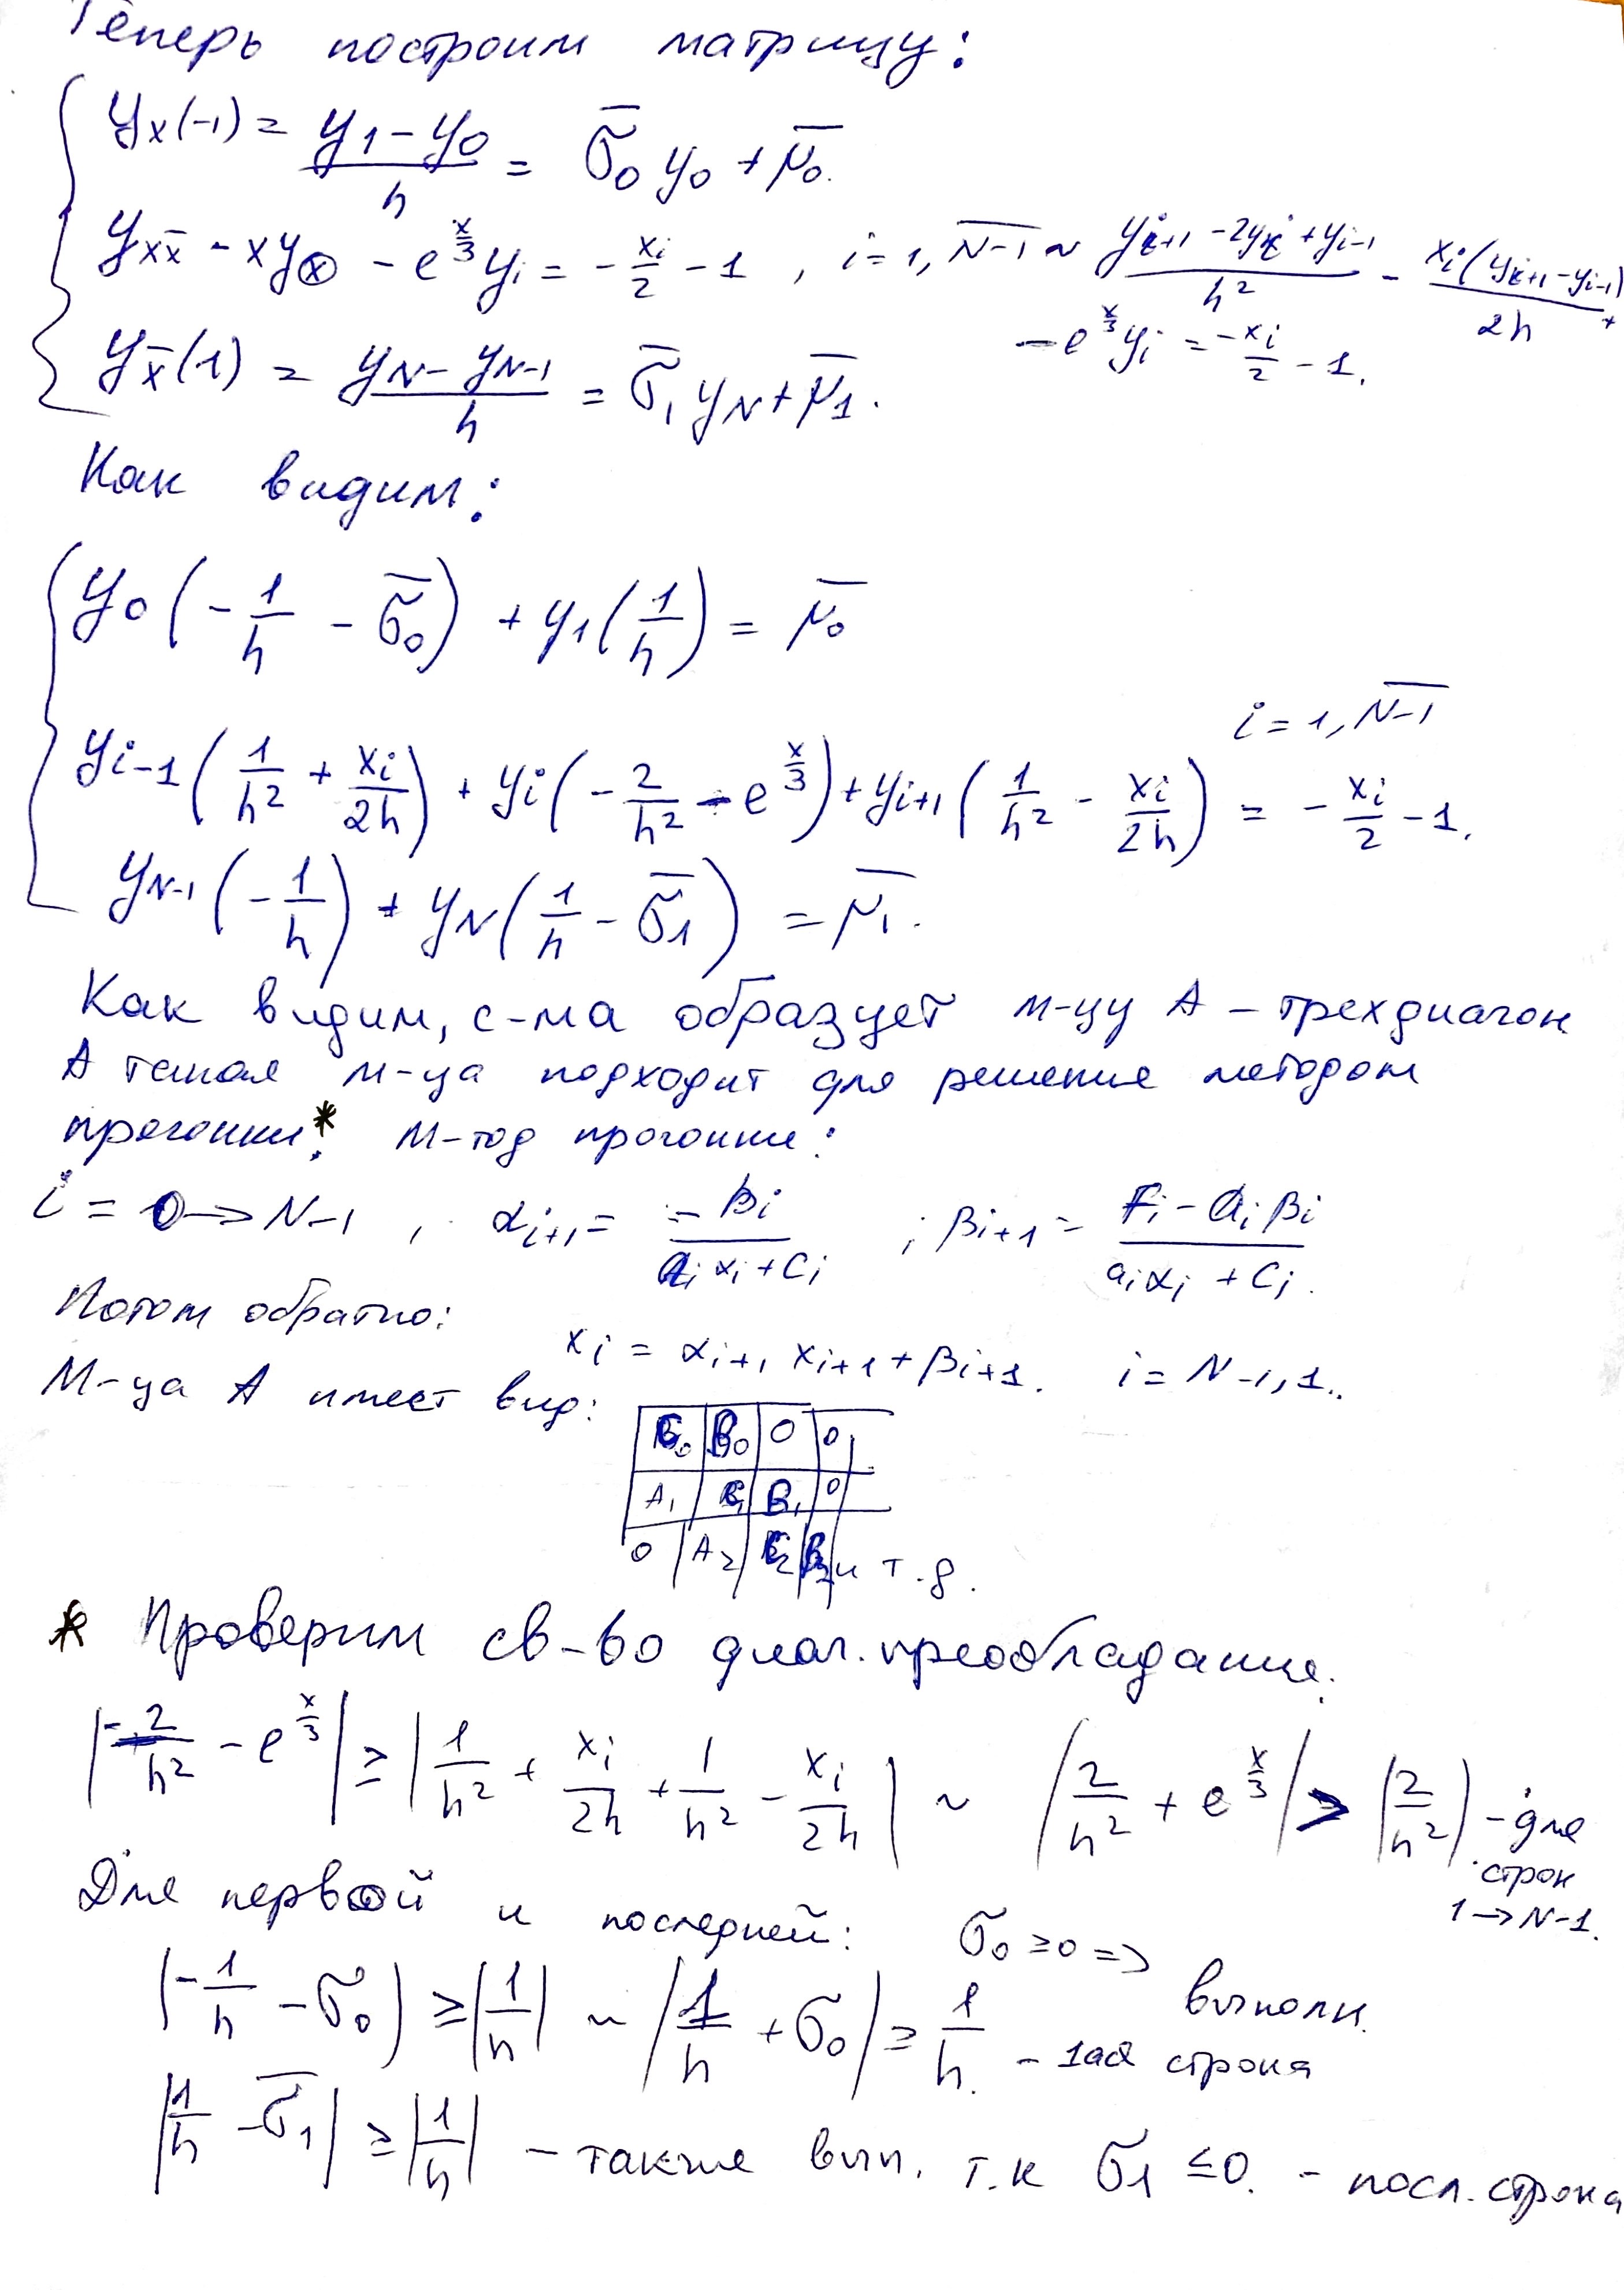 Теперь построим матрицу:
y_x(-1) = (y_1 - y_0)/h = σ̄_0 y_0 + μ̄_0.
y_{xx̄} - x y_{x} - e^{x/3} y_i = - x_i/2 - 1, i = 1, N-1 ~ (y_{i+1} - 2y_i + y_{i-1})/h² - x_i(y_{i+1} - y_{i-1})/2h
- e^{x/3} y_i = - x_i/2 - 1.
y_x̄(1) = (y_N - y_{N-1})/h = σ̄_1 y_N + μ̄_1.
Как видим:
y_0(-1/h - σ̄_0) + y_1(1/h) = μ̄_0
i = 1, N-1
y_{i-1}(1/h² + x_i/2h) + y_i(-2/h² - e^{x/3}) + y_{i+1}(1/h² - x_i/2h) = - x_i/2 - 1.
y_{N-1}(-1/h) + y_N(1/h - σ̄_1) = μ̄_1.
Как видим, с-ма образует м-цу A – трехдиагон
А такая м-ца подходит для решение методом
прогонки.* М-тод прогонки:
i = 0 → N-1, α_{i+1} = -B_i/(a_i α_i + C_i); β_{i+1} = (F_i - a_i β_i)/(a_i α_i + C_i).
Потом обратно:
x_i = α_{i+1} x_{i+1} + β_{i+1}. i = N-1, 1..
М-ца A имеет вид:
C_0 B_0 0 0
A_1 C_1 B_1 0
0 A_2 C_2 B_2 и т.д.
* Проверим св-во диаг. преобладание.
|-2/h² - e^{x/3}| ≥ |1/h² + x_i/2h + 1/h² - x_i/2h| ~ |2/h² + e^{x/3}| > |2/h²| - для
строк
1 → N-1.
Для первой и последней: σ_0 ≥ 0 =>
выполн.
|-1/h - σ_0| ≥ |1/h| ~ |1/h + σ_0| ≥ 1/h. - 1ая строка
|1/h - σ̄_1| ≥ |1/h| - также вып. т.к σ_1 ≤ 0. - посл. строка